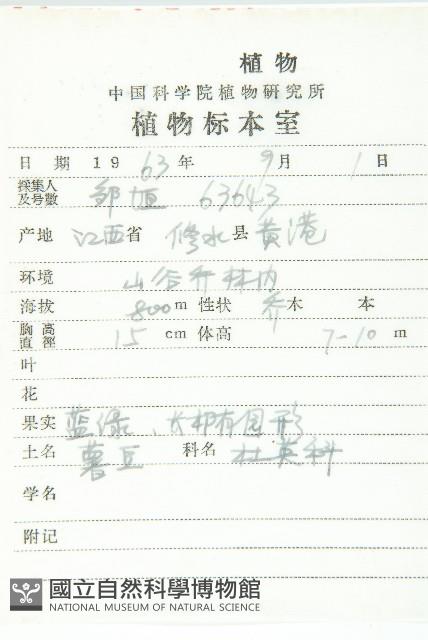 植物
中国科学院植物研究所
植物标本室
日期 1963年 9月 1日
採集人及号數 邹垣 63643
产地 江西省 修水县 黄港
环境 山谷乔林内
海拔 800m 性状 乔木 本
胸高直徑 15 cm 体高 7-10 m
叶
花
果实 蓝绿、大卵有圆形
土名 薯豆 科名 杜英科
学名
附记
國立自然科學博物館
NATIONAL MUSEUM OF NATURAL SCIENCE